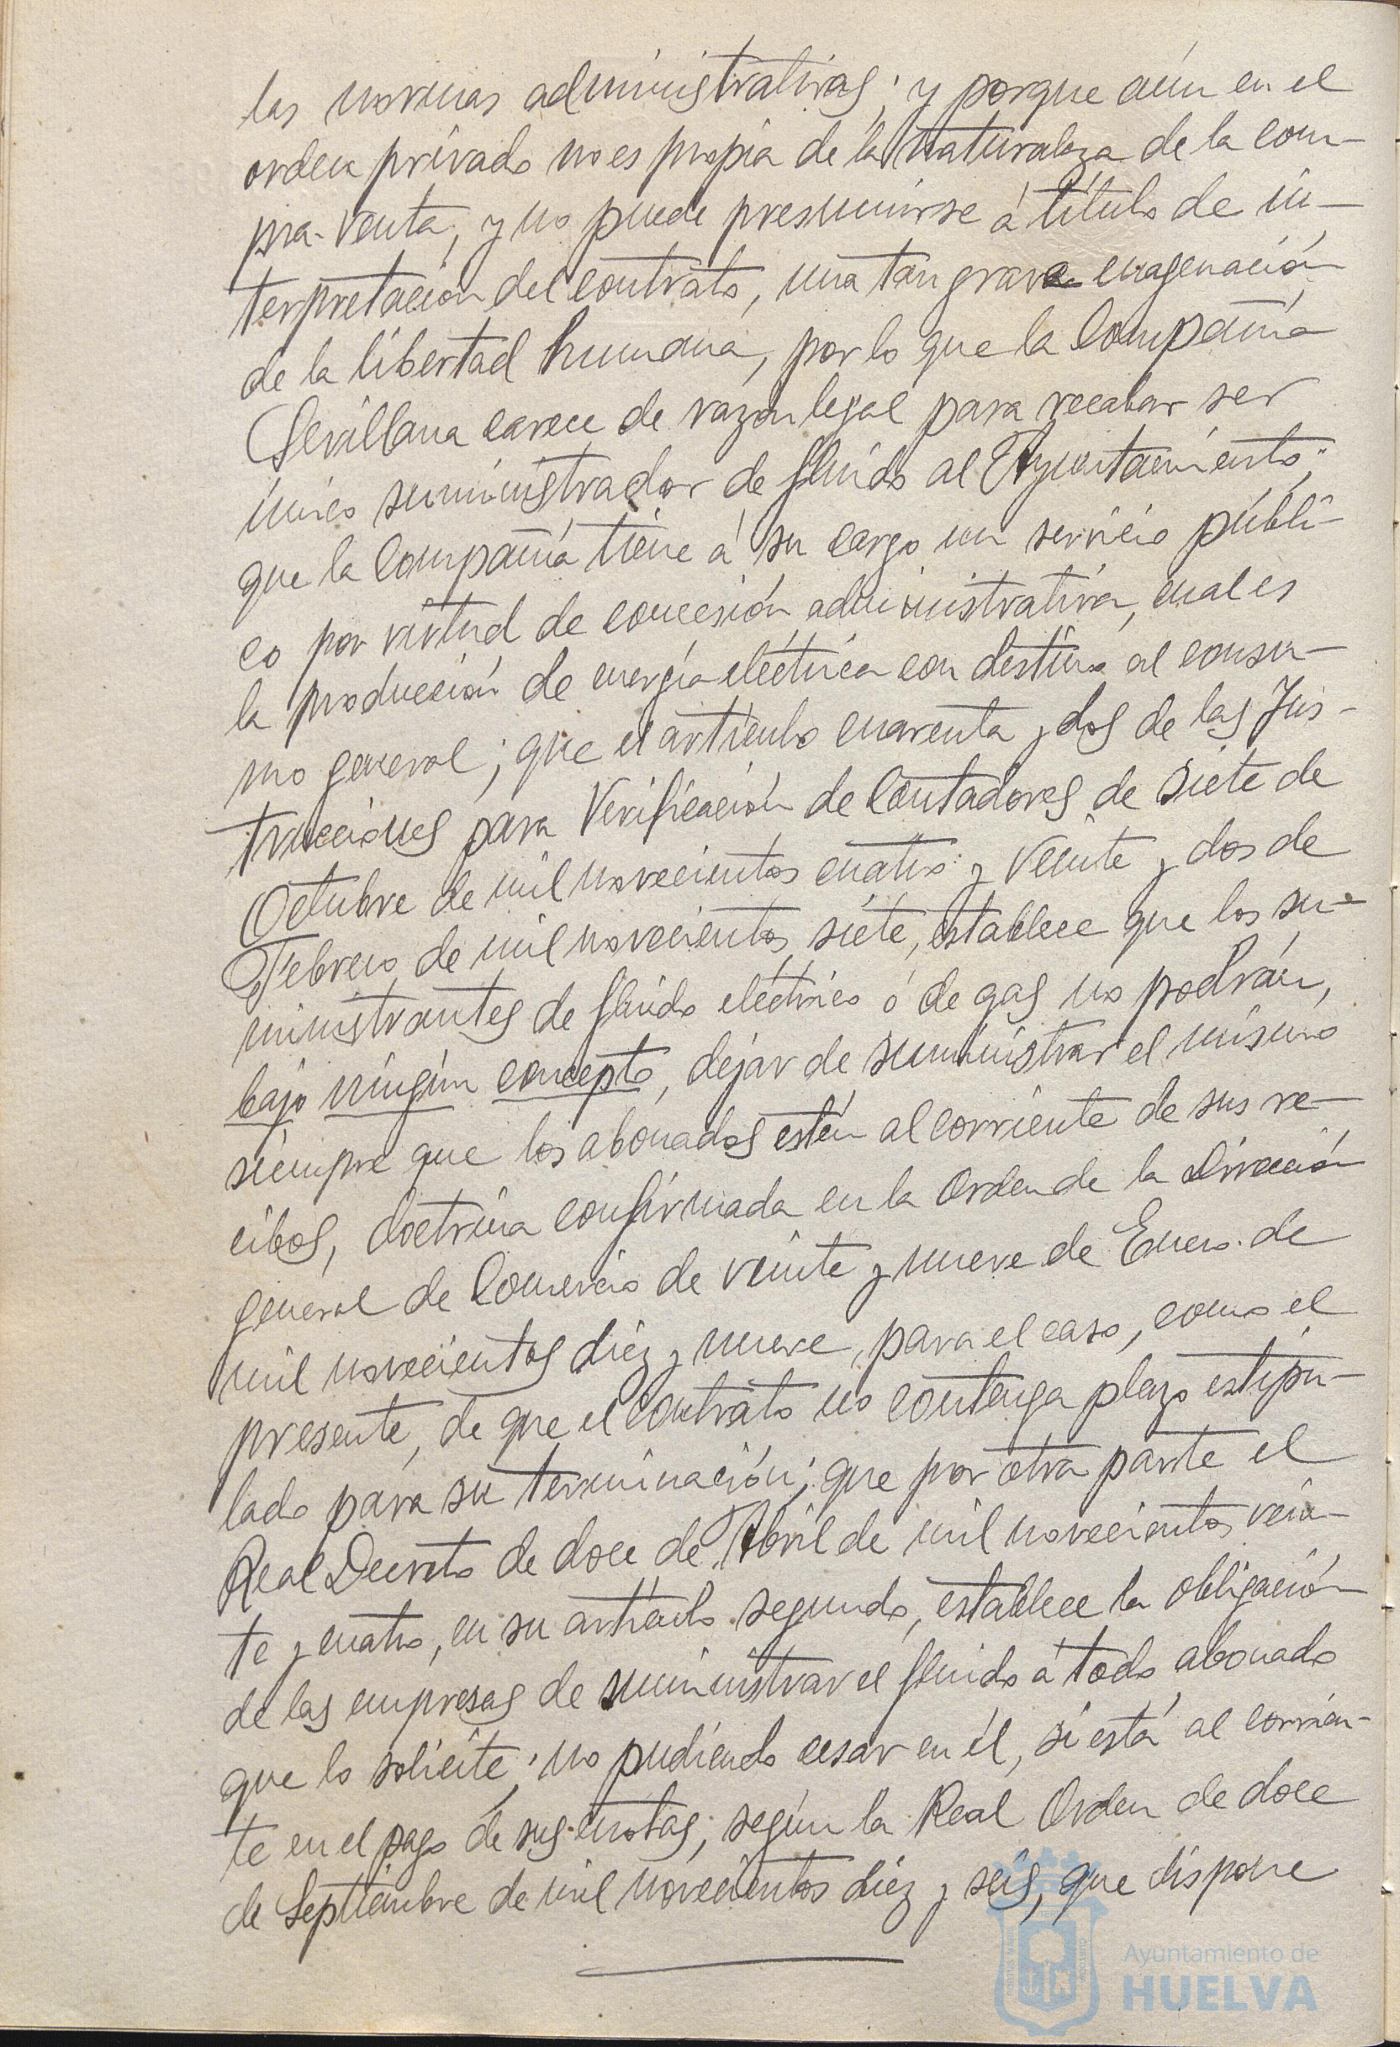 las normas administrativas; y porque aún en el
orden privado no es propia de la naturaleza de la com-
pra-venta, y no puede presumirse á título de in-
terpretación del contrato, una tan grave enagenación
de la libertad humana, por lo que la Compañía
Sevillana carece de razón legal para recabar ser
único suministrador de fluido al Ayuntamiento;
que la Compañía tiene á su cargo un servicio públi-
co por virtud de concesión administrativa, cual es
la producción de energía eléctrica con destino al consu-
mo general; que el artículo cuarenta y dos de las Ins-
trucciones para Verificación de Contadores de siete de
Octubre de mil novecientos cuatro y veinte y dos de
Febrero de mil novecientos siete, establece que los su-
ministrantes de fluido eléctrico ó de gas no podrán,
bajo ningún concepto, dejar de suministrar el mismo
siempre que los abonados estén al corriente de sus re-
cibos, doctrina confirmada en la Orden de la Dirección
general de Comercio de veinte y nueve de Enero de
mil novecientos diez y nueve, para el caso, como el
presente, de que el contrato no contenga plazo estipu-
lado para su terminación; que por otra parte el
Real Decreto de doce de Abril de mil novecientos vein-
te y cuatro, en su artículo segundo, establece la obligación
de las empresas de suministrar el fluido á todo abonado
que lo solicite; no pudiendo cesar en él, si está al corrien-
te en el pago de sus cuotas, según la Real Orden de doce
de Septiembre de mil novecientos diez y seis, que dispone
Ayuntamiento de
HUELVA